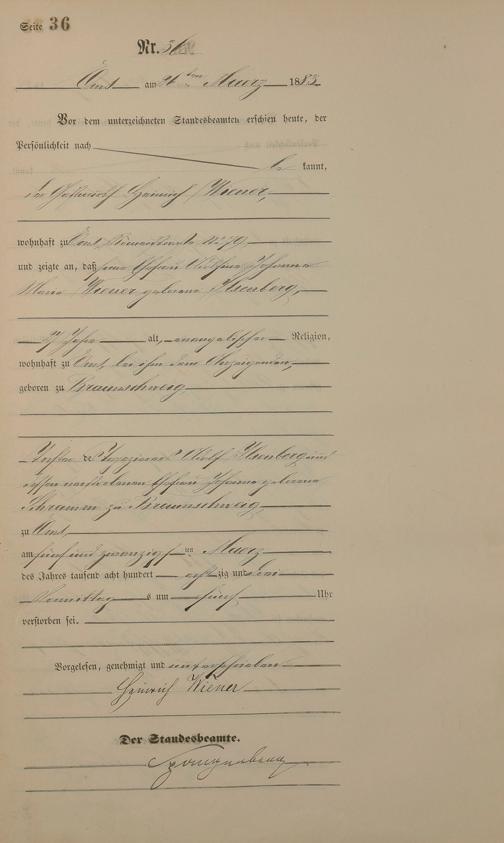 Seite 36
Nr. 36
Ems am 27 ten Maerz 1883
Vor dem unterzeichneten Standesbeamten erschien heute, der
Persönlichkeit nach
be kannt,
der Heinrich Wiener,
wohnhaft zu Ems, No 79,
und zeigte an, daß seine Ehefrau Johanna
Maria Wiener geborene Isenberg,
Jahre alt, evangelischer Religion,
wohnhaft zu Ems, bei ihm dem Anzeigenden,
geboren zu Braunschweig
Tochter des Isenberg und
dessen Ehefrau Johanna geborene
Schramm zu Braunschweig,
zu Ems,
am fünf und zwanzigsten Maerz
des Jahres tausend acht hundert acht zig und drei
Vormittag s um fünf Uhr
verstorben sei.
Vorgelesen, genehmigt und unterschrieben
Heinrich Wiener
Der Standesbeamte.
Spangenberg